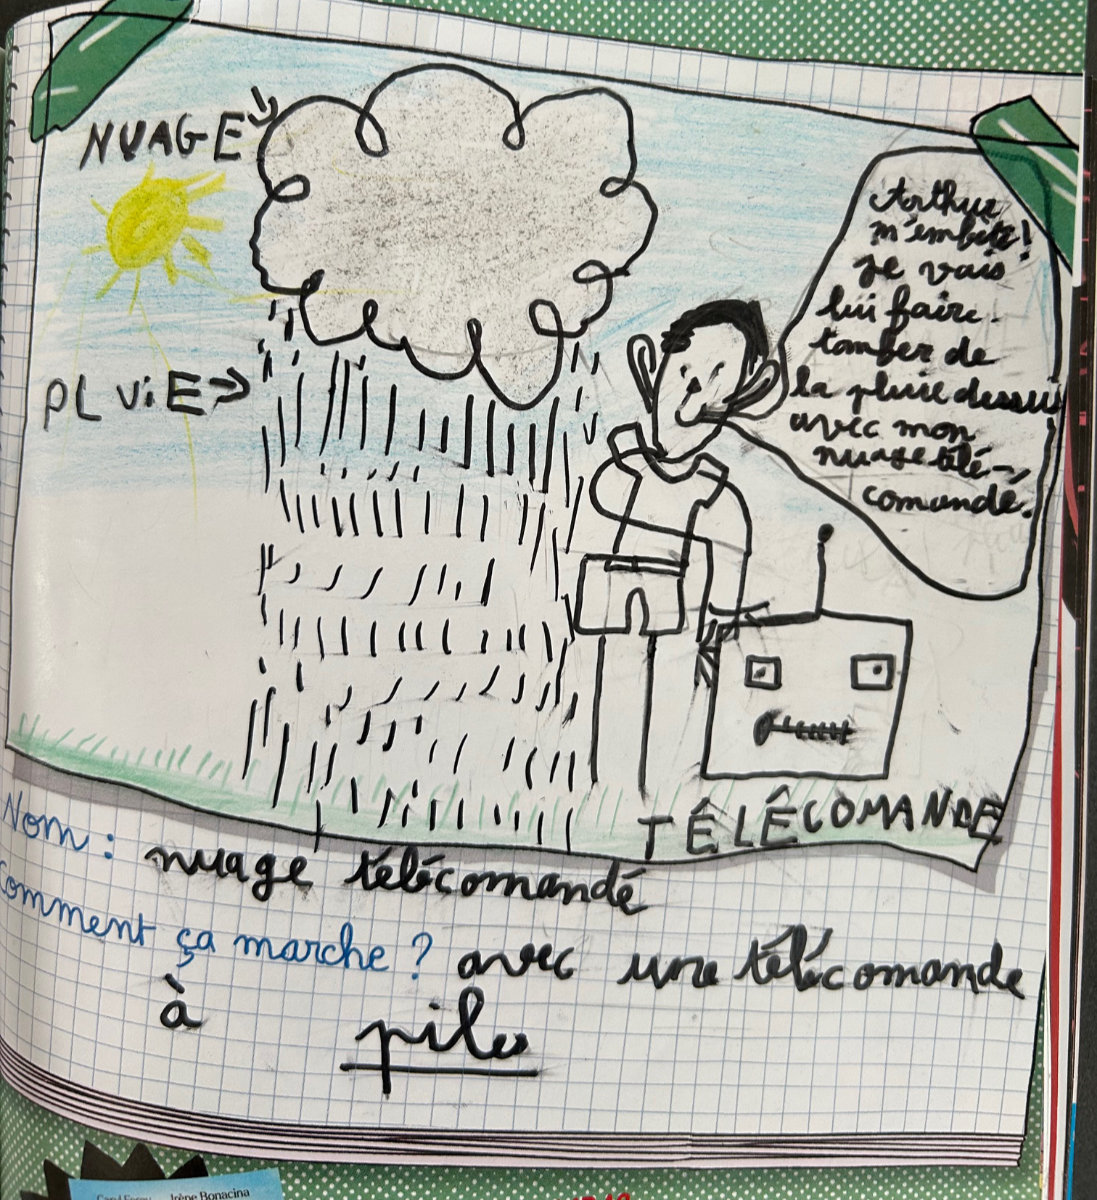 NUAGE
PLUiE
Arthur
m'embête!
je vais
lui faire
tomber de
la pluie dessus
avec mon
nuage télé-
comandé.
TÊLÊCOMANDE
Nom : nuage télécomandé
Comment ça marche ? avec une télécomande
à pile
Irène Bonacina